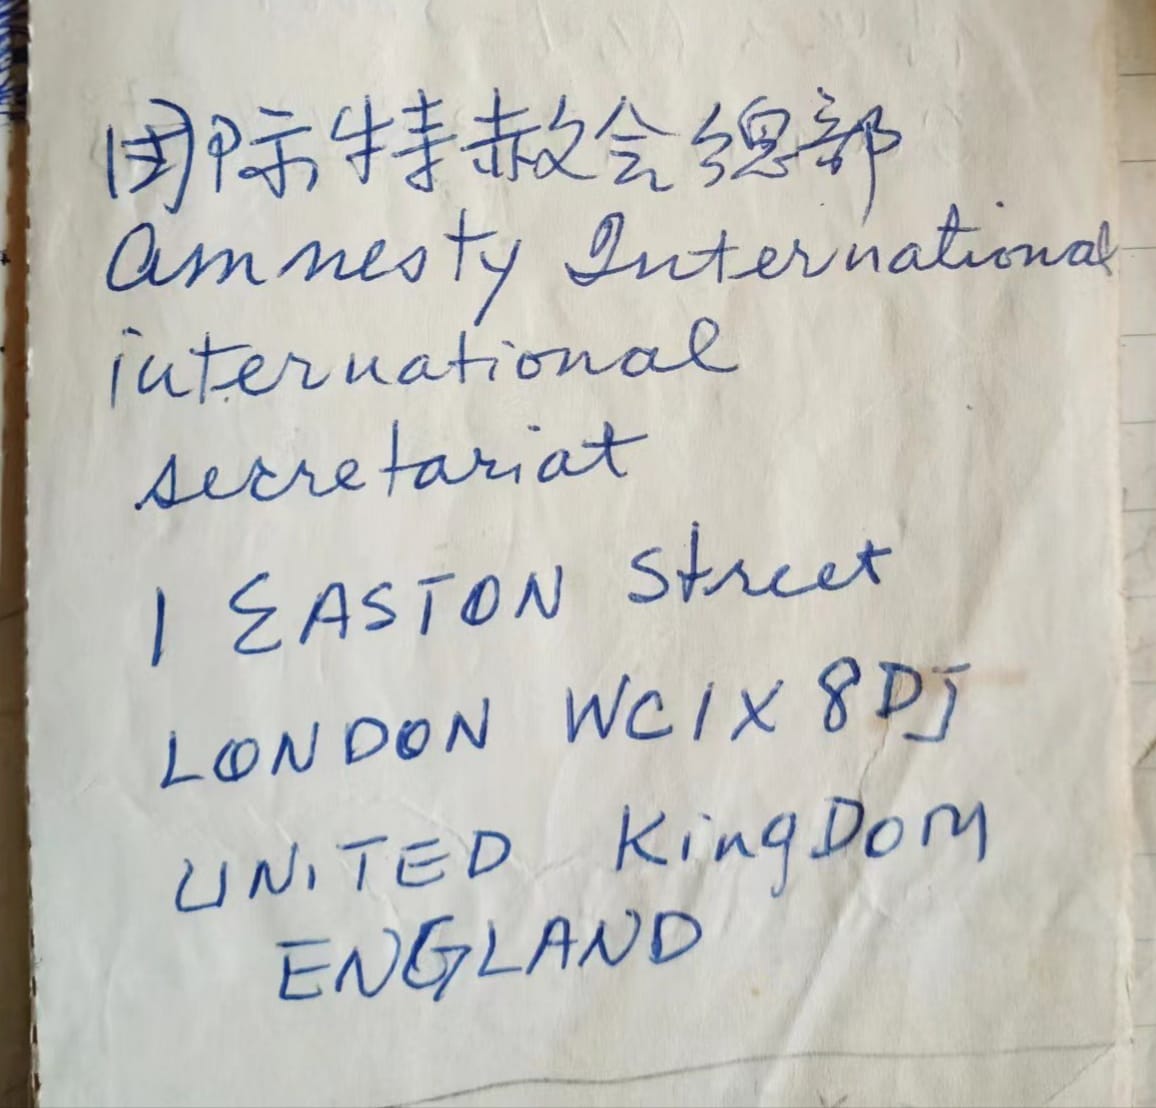 国际特赦会總部
Amnesty International
international
secretariat
1 EASTON Street
LONDON WC1X 8DJ
UNITED KingDom
ENGLAND